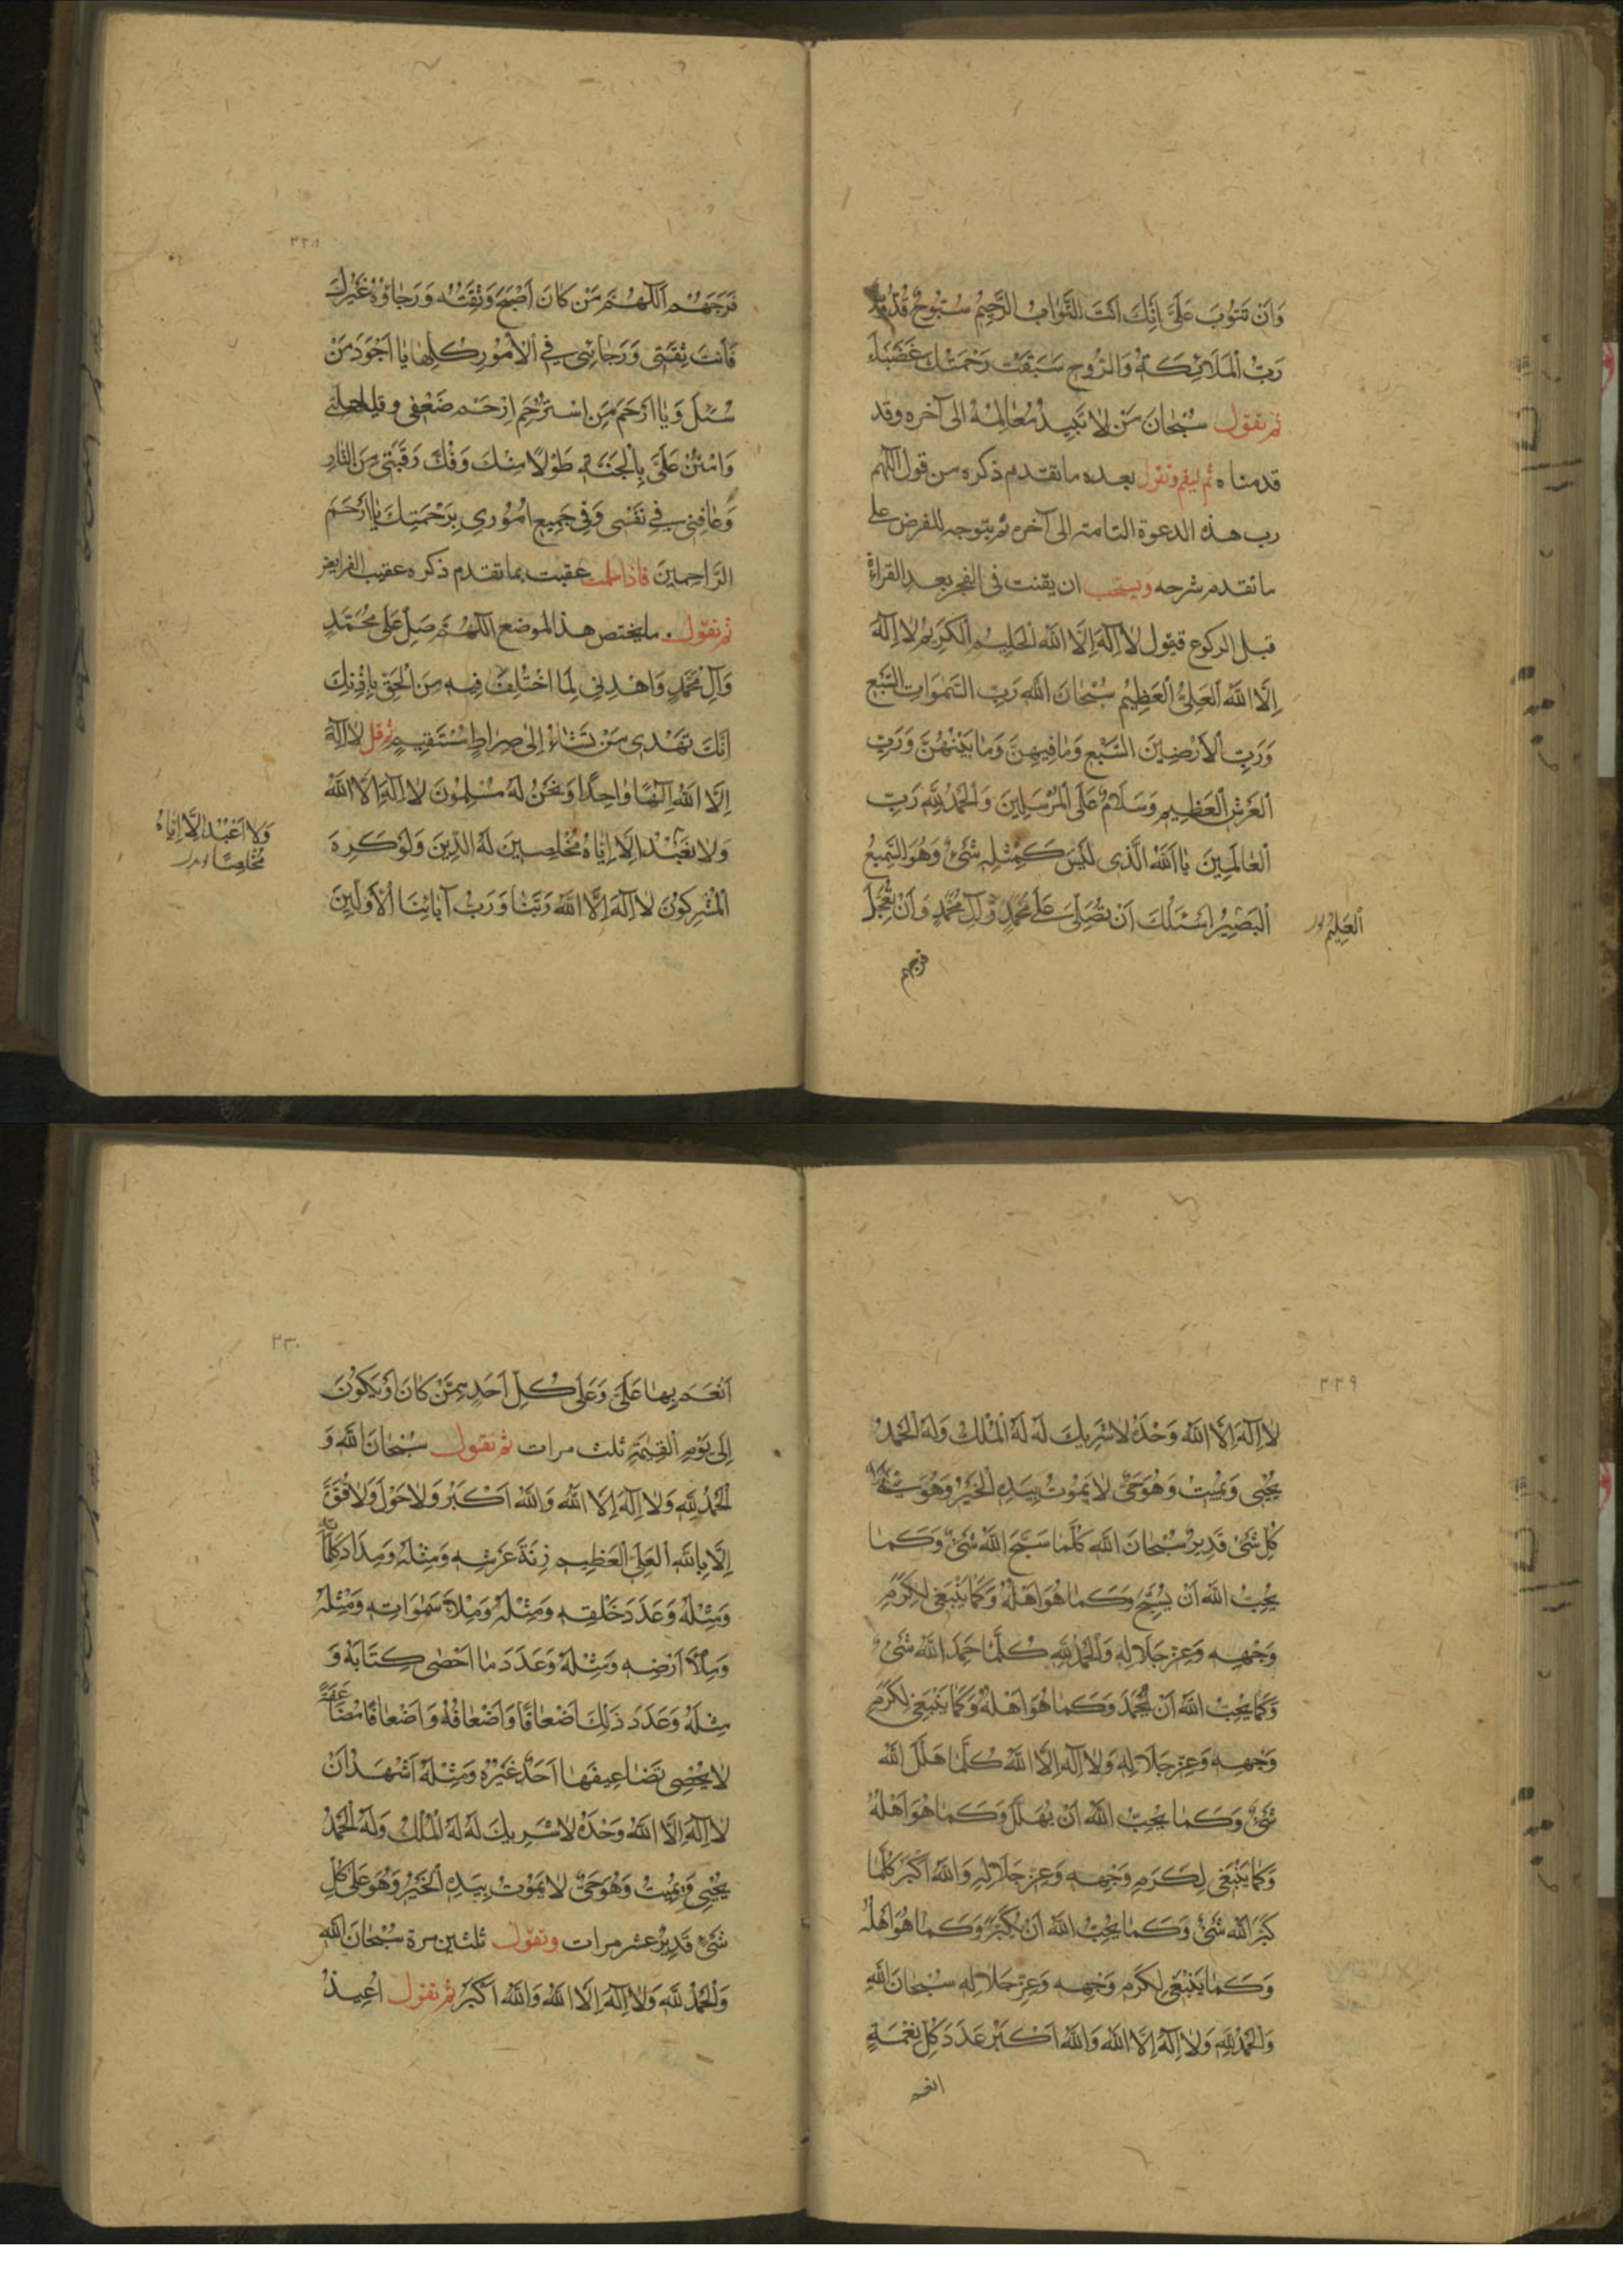 وَاَنْ تَتُوبَ عَلَیَّ اِنَّكَ اَنْتَ التَّوَّابُ الرَّحِیمُ سُبُّوحٌ قُدُّوسٌ
رَبُّ الْمَلَائِكَةِ وَالرُّوحِ سَبَقَتْ رَحْمَتُكَ غَضَبَكَ
ثم تقول سُبْحَانَ مَنْ لَا تَبِیدُ مَعَالِمُهُ الی آخره وقد
قدمناه ثم لیقم وتقول بعده ما تقدم ذكره من قول اللهم
رب هذه الدعوة التامة الی آخره ثم یتوجه للفرض علی
ما تقدم شرحه ویستحب ان یقنت فی الفجر بعد القراءة
قبل الركوع فیقول لَا اِلَهَ اِلَّا اللهُ الْحَلِیمُ الْكَرِیمُ لَا اِلَهَ
اِلَّا اللهُ الْعَلِیُّ الْعَظِیمُ سُبْحَانَ اللهِ رَبِّ السَّمَوَاتِ السَّبْعِ
وَرَبِّ الْاَرَضِینَ السَّبْعِ وَمَا فِیهِنَّ وَمَا بَیْنَهُنَّ وَرَبِّ
الْعَرْشِ الْعَظِیمِ وَسَلَامٌ عَلَی الْمُرْسَلِینَ وَالْحَمْدُ لِلَّهِ رَبِّ
الْعَالَمِینَ یَا اَللهُ الَّذِی لَیْسَ كَمِثْلِهِ شَیْءٌ وَهُوَ السَّمِیعُ
الْبَصِیرُ اَسْئَلُكَ اَنْ تُصَلِّیَ عَلَی مُحَمَّدٍ وَآلِ مُحَمَّدٍ وَاَنْ تُعَجِّلَ
الْعَلِیمُ
فرجهم
فَرَجَهُمْ اَللّهُمَّ مَنْ كَانَ اَصْبَحَ وَثِقَتُهُ وَرَجَاؤُهُ غَیْرُكَ
فَاَنْتَ ثِقَتِی وَرَجَائِی فِی الْاُمُورِ كُلِّهَا یَا اَجْوَدَ مَنْ
سُئِلَ وَیَا اَرْحَمَ مَنِ اسْتُرْحِمَ اِرْحَمْ ضَعْفِی وقلة حیلتی
وَامْنُنْ عَلَیَّ بِالْجَنَّةِ طَوْلًا مِنْكَ وَفُكَّ رَقَبَتِی مِنَ النَّارِ
وَعَافِنِی فِی نَفْسِی وَفِی جَمِیعِ اُمُورِی بِرَحْمَتِكَ یَا اَرْحَمَ
الرَّاحِمِینَ فاذا سلمت عقبت بما تقدم ذكره عقیب الفرایض
ثم تقول ما یختص هذا الموضع اَللّهُمَّ صَلِّ عَلَی مُحَمَّدٍ
وَآلِ مُحَمَّدٍ وَاهْدِنِی لِمَا اخْتُلِفَ فِیهِ مِنَ الْحَقِّ بِاِذْنِكَ
اِنَّكَ تَهْدِی مَنْ تَشَاءُ اِلَی صِرَاطٍ مُسْتَقِیمٍ ثم قل لَا اِلَهَ
اِلَّا اللهُ اِلَهًا وَاحِدًا وَنَحْنُ لَهُ مُسْلِمُونَ لَا اِلَهَ اِلَّا اللهُ
وَلَا نَعْبُدُ اِلَّا اِیَّاهُ مُخْلِصِینَ لَهُ الدِّینَ وَلَوْ كَرِهَ
الْمُشْرِكُونَ لَا اِلَهَ اِلَّا اللهُ رَبُّنَا وَرَبُّ آبَائِنَا الْاَوَّلِینَ
وَلَا اَعْبُدُ اِلَّا اِیَّاهُ
مُخْلِصًا
٢٢٩
لَا اِلَهَ اِلَّا اللهُ وَحْدَهُ لَا شَرِیكَ لَهُ لَهُ الْمُلْكُ وَلَهُ الْحَمْدُ
یُحْیِی وَیُمِیتُ وَهُوَ حَیٌّ لَا یَمُوتُ بِیَدِهِ الْخَیْرُ وَهُوَ عَلَی
كُلِّ شَیْءٍ قَدِیرٌ سُبْحَانَ اللهِ كُلَّمَا سَبَّحَ اللهَ شَیْءٌ وَكَمَا
یُحِبُّ اللهُ اَنْ یُسَبَّحَ وَكَمَا هُوَ اَهْلُهُ وَكَمَا یَنْبَغِی لِكَرَمِ
وَجْهِهِ وَعِزِّ جَلَالِهِ وَالْحَمْدُ لِلَّهِ كُلَّمَا حَمِدَ اللهَ شَیْءٌ
وَكَمَا یُحِبُّ اللهُ اَنْ یُحْمَدَ وَكَمَا هُوَ اَهْلُهُ وَكَمَا یَنْبَغِی لِكَرَمِ
وَجْهِهِ وَعِزِّ جَلَالِهِ وَلَا اِلَهَ اِلَّا اللهُ كُلَّمَا هَلَّلَ اللهَ
شَیْءٌ وَكَمَا یُحِبُّ اللهُ اَنْ یُهَلَّلَ وَكَمَا هُوَ اَهْلُهُ
وَكَمَا یَنْبَغِی لِكَرَمِ وَجْهِهِ وَعِزِّ جَلَالِهِ وَاللهُ اَكْبَرُ كُلَّمَا
كَبَّرَ اللهَ شَیْءٌ وَكَمَا یُحِبُّ اللهُ اَنْ یُكَبَّرَ وَكَمَا هُوَ اَهْلُهُ
وَكَمَا یَنْبَغِی لِكَرَمِ وَجْهِهِ وَعِزِّ جَلَالِهِ سُبْحَانَ اللهِ
وَالْحَمْدُ لِلَّهِ وَلَا اِلَهَ اِلَّا اللهُ وَاللهُ اَكْبَرُ عَدَدَ كُلِّ نِعْمَةٍ
انعم
٢٣٠
اَنْعَمَ بِهَا عَلَیَّ وَعَلَی كُلِّ اَحَدٍ مِمَّنْ كَانَ اَوْ یَكُونُ
اِلَی یَوْمِ الْقِیَمَةِ ثلث مرات ثم تقول سُبْحَانَ اللهِ وَ
الْحَمْدُ لِلَّهِ وَلَا اِلَهَ اِلَّا اللهُ وَاللهُ اَكْبَرُ وَلَا حَوْلَ وَلَا قُوَّةَ
اِلَّا بِاللهِ الْعَلِیِّ الْعَظِیمِ زِنَةَ عَرْشِهِ وَمِثْلَهُ وَمِدَادَ كَلِمَاتِهِ
وَمِثْلَهُ وَعَدَدَ خَلْقِهِ وَمِثْلَهُ وَمِلْاَ سَمَوَاتِهِ وَمِثْلَهُ
وَمِلْاَ اَرْضِهِ وَمِثْلَهُ وَعَدَدَ مَا اَحْصَی كِتَابُهُ وَ
مِثْلَهُ وَعَدَدَ ذَلِكَ اَضْعَافًا وَاَضْعَافَهُ وَاَضْعَافًا مُضَاعَفَةً
لَا یُحْصِی تَضَاعِیفَهَا اَحَدٌ غَیْرُهُ وَمِثْلَهُ اَشْهَدُ اَنْ
لَا اِلَهَ اِلَّا اللهُ وَحْدَهُ لَا شَرِیكَ لَهُ لَهُ الْمُلْكُ وَلَهُ الْحَمْدُ
یُحْیِی وَیُمِیتُ وَهُوَ حَیٌّ لَا یَمُوتُ بِیَدِهِ الْخَیْرُ وَهُوَ عَلَی كُلِّ
شَیْءٍ قَدِیرٌ عشر مرات وتقول ثلثین مرة سُبْحَانَ اللهِ
وَالْحَمْدُ لِلَّهِ وَلَا اِلَهَ اِلَّا اللهُ وَاللهُ اَكْبَرُ ثم تقول اُعِیذُ